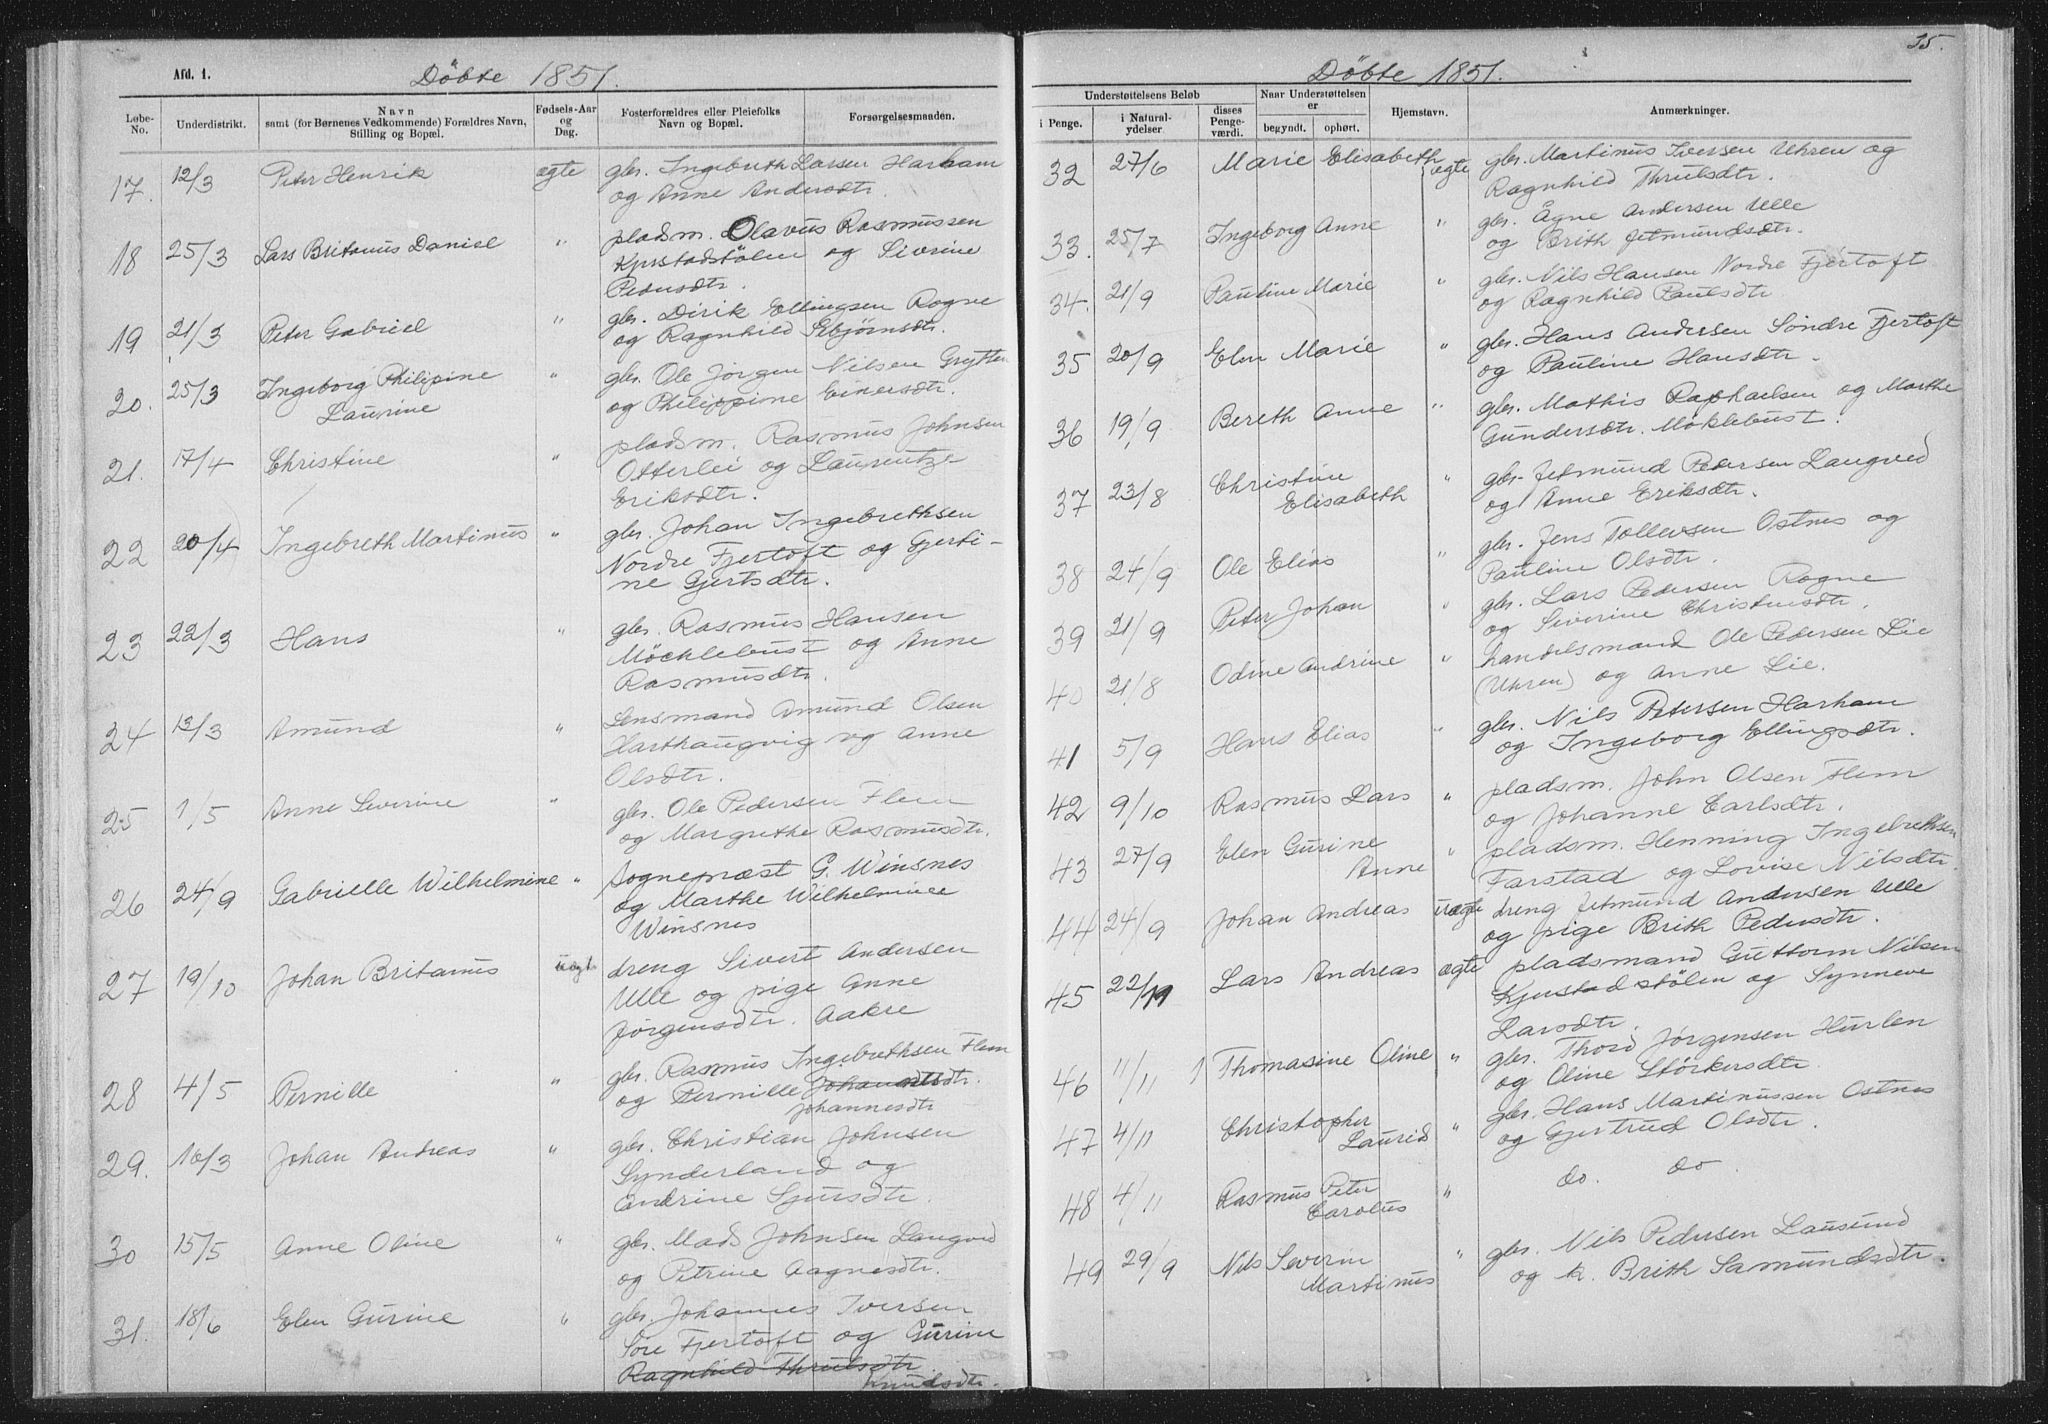 Afd. 1.
Döbte 1851.
Løbe-No.
Underdistrikt.
Navn
samt (for Børnenes Vedkommende) Forældres Navn,
Stilling og Bopæl.
Fødsels-Aar
og
Dag.
Fosterforældres eller Pleiefolks
Navn og Bopæl.
Forsørgelsesmaaden.
17. 12/3 Peter Henrik ægte gbr. Ingebrith Larsen Harham
og Anne Andersdtr.
18 25/3 Lars Britanus Daniel " pladsm. Olavus Rasmussen
Kjerstadstölen og Siverine
Pedersdtr.
19 21/3 Peter Gabriel " gbr. Dirik Ellingsen Rogne
og Ragnhild Esbjørnsdtr.
20. 25/3 Ingeborg Philipine " gbr. Ole Jörgen Nilsen Grytten
Laurine og Philippine Einersdtr.
21. 17/4 Christine " pladsm. Rasmus Johnsen
Otterlei og Laurentze
Eriksdtr.
22 20/4 Ingebreth Martinus " gbr. Johan Ingebrethsen
Nordre Fjertoft og Gjerti-
ne Gjertsdtr.
23 22/3 Hans " gbr. Rasmus Hansen
Möcklebust og Anne
Rasmusdtr.
24 13/3 Amund " Lensmand Amund Olsen
Harthaugvig og Anne
Olsdtr.
25 1/5 Anne Severine " gbr. Ole Pedersen Flem
og Margrethe Rasmusdtr.
26 24/9 Gabrielle Wilhelmine " Sognepræst G. Winsnes
og Marthe Wilhelmine
Winsnes
27 19/10 Johan Britanus uægt. dreng Sivert Andersen
Ulle og pige Anne
Jørgensdtr. Aakre
28 4/5 Pernille " gbr. Rasmus Ingebrethsen Flem
og Pernille Johannesdtr.
Johannesdtr
29. 16/3 Johan Andreas " gbr. Christian Johnsen
Synderland og
Andrine Sjursdtr.
30 15/5 Anne Oline " gbr. Mads Johnsen Langved
og Petrine Aagnesdtr.
31. 18/6 Elen Gurine " gbr. Johannes Iversen
Söre Fjertoft og Gurine
Ragnhild Thrulsdtr
Knudsdtr.
35.
Döbte 1851.
Understøttelsens Beløb
i Penge.
i Natural-
ydelser
disses
Penge-
værdi.
Naar Understøttelsen
er
begyndt.
ophørt.
Hjemstavn.
Anmærkninger.
32 27/6 Marie Elisabeth ægte gbr. Martinus Iversen Uhren og
Ragnhild Thrulsdtr.
33. 25/7 Ingeborg Anne " gbr. Ågne Andersen Ulle
og Brith Jetmundsdtr.
34. 21/9 Pauline Marie " gbr. Nils Hansen Nordre Fjertoft
og Ragnhild Paulsdtr
35 20/9 Elen Marie " gbr. Hans Andersen Söndre Fjertoft
og Pauline Hansdtr.
36 19/9 Bereth Anne " gbr. Mathis Raphaelsen og Marthe
Gundersdtr. Möklebust.
37 23/8 Christine " gbr. Jetmund Pedersen Langved
Elisabeth og Anne Eriksdtr.
38 24/9 Ole Elias " gbr. Jens Tollevsen Ostnes og
Pauline Olsdtr.
39 21/9 Peter Johan " gbr. Lars Pedersen Rogne
og Siverine Christensdtr.
40 21/8 Odine Andrine " handelsmand Ole Pedersen Lie
(Uhren) og Anne Lie.
41 5/9 Hans Elias " gbr. Nils Petersen Harham
og Ingeborg Ellingsdtr.
42 9/10 Rasmus Lars " pladsm. John Olsen Flem
og Johanne Carlsdtr.
43 27/9 Elen Gurine " pladsm. Henning Ingebrethsen
Anne Farstad og Lovise Nilsdtr.
44 24/9 Johan Andreas uægte dreng Jetmund Andersen Ulle
og pige Brith Pedersdtr.
45 22/11 Lars Andreas ægte pladsmand Guttorm Nilsen
Kjerstadstölen og Synneve
Larsdtr.
46 11/11 Thomasine Oline " gbr. Thord Jörgensen Hurlen
og Oline Störkersdtr.
47 4/11 Christopher " gbr. Hans Martinussen Ostnes
Laurids og Gjertrud Olsdtr.
48 4/11 Rasmus Peter " do. do.
Carolus
49 29/9 Nils Severin " gbr. Nils Pedersen Lausund
Martinus og k. Brith Samundsdtr.